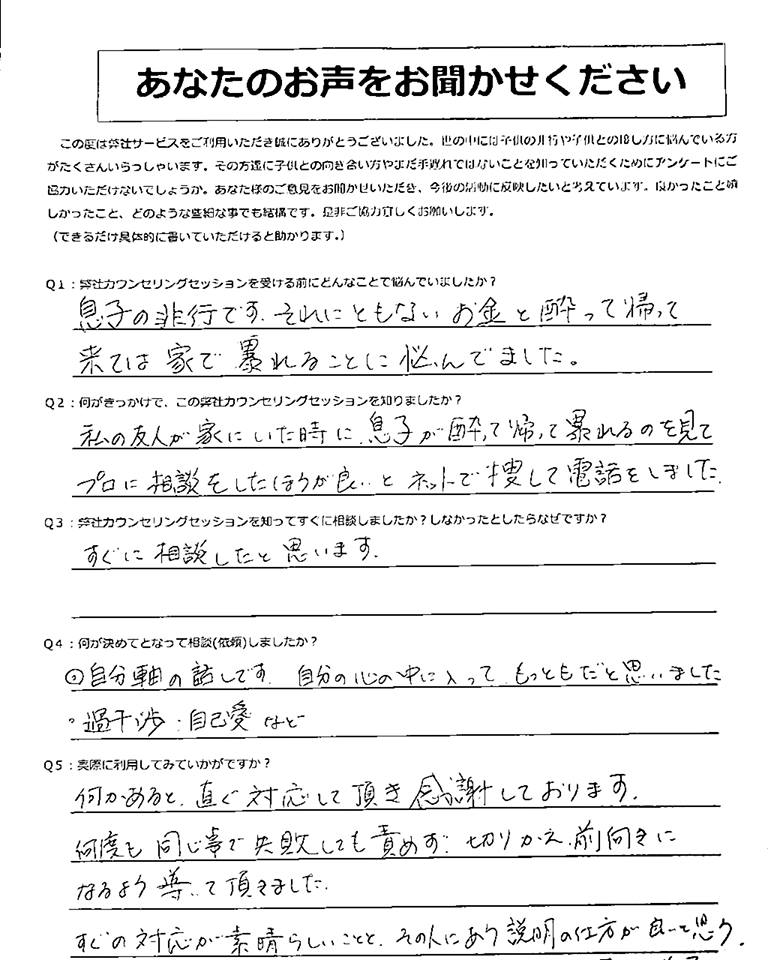 あなたのお声をお聞かせください
この度は弊社サービスをご利用いただき誠にありがとうございました。世の中には子供の非行や子供との接し方に悩んでいる方
がたくさんいらっしゃいます。その方達に子供との向き合い方やまだ手遅れではないことを知っていただくためにアンケートにご
協力いただけないでしょうか。あなた様のご意見をお聞かせいただき、今後の活動に反映したいと考えています。良かったこと嬉
しかったこと、どのような些細な事でも結構です。是非ご協力宜しくお願いします。
(できるだけ具体的に書いていただけると助かります。)
Q1:弊社カウンセリングセッションを受ける前にどんなことで悩んでいましたか?
息子の非行です. それにともない お金と酔って帰って
来ては 家で 暴れることに悩んでました。
Q2:何がきっかけで、この弊社カウンセリングセッションを知りましたか?
私の友人が家にいた時に.息子が酔って帰って暴れるのを見て
プロに相談をしたほうが良いと ネットで捜して電話をしました.
Q3:弊社カウンセリングセッションを知ってすぐに相談しましたか?しなかったとしたらなぜですか?
すぐに相談したと思います.
Q4:何が決めてとなって相談(依頼)しましたか?
自分軸の話しです. 自分の心の中に入って もっともだと思いました
・過干渉・自己愛 など
Q5:実際に利用してみていかがですか?
何かあると、直ぐ対応して頂き感謝しております.
何度も同じ事で失敗しても責めず. 切りかえ.前向きに
なるよう導いて頂きました.
すぐの対応が素晴らしいことと、その人にあう説明の仕方が良いと思う.